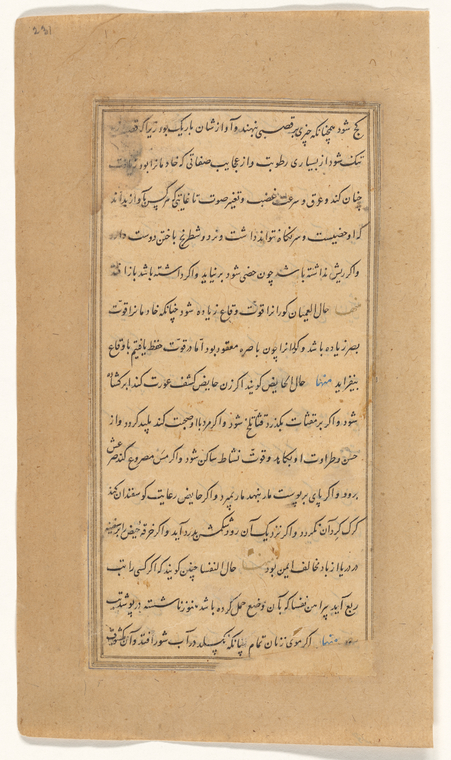 کج شود همچنانکه چیزی بر قصبی نهند و آوازشان باریک بود زیرا که
تنک شود از بسیاری رطوبت و از عجایب صفاتی که خادمانرا بود
چنان کند و عرق و سرعت غضب و تغیر صوت تا غایتی که هر کس که آواز بداند
که او خصیست و سر نگاه نتواند داشت و نرد و شطرنج باختن دوست دارد
و اگر ریش نداشته باشد چون خصی شود بر نیاید و اگر داشته باشد باز
حال العمیان کورانرا قوت وقاع زیاده شود چنانکه خادمانرا قوت
بصر زیاده باشد و کورانرا چون باصره مفقود بود اما در قوت حفظ یافتیم با وقاع
بیفزاید منها حال الحایض گویند اگر زن حایض کشف عورت کند ابر گشاده
شود و اگر بر مقثات بگذرد قثا تلخ شود و اگر مرد با او صحبت کند پلید گردد و از
حسن و طراوت او بکاهد و قوت نشاط ساکن شود و اگر مس مصروع کند صرعش
برود و اگر پای بر پوست مار نهد مار بمیرد و اگر حایض رعایت گوسفندان کند
گرگ گرد آن نگردد و اگر نزدیک آن رود شکمش بدرد آید و اگر خرقه حیض را بر
در دریا از باد مخالف ایمن بود حال النفسا چنین گویند که اگر کسی را تب
ربع آید پیراهن نفسا که بآن وضع حمل کرده باشد هنوز ناشسته در پوشد تب
منها اگر موی زنان تمام چنانکه بگسلد در آب شور افتد و آن